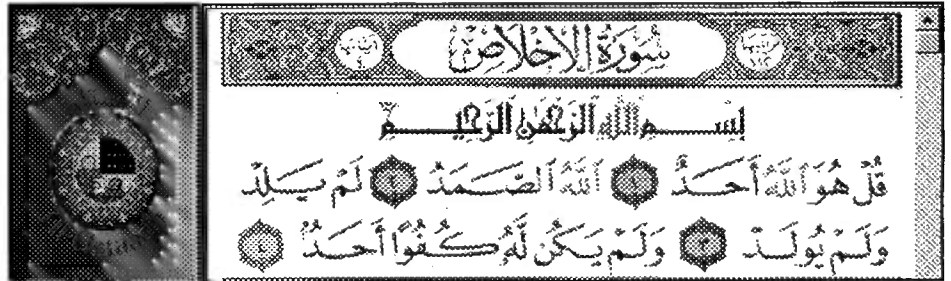 سُورَةُ الإِخْلَاصِ
بِسْمِ اللَّهِ الرَّحْمَٰنِ الرَّحِيمِ
قُلْ هُوَ ٱللَّهُ أَحَدٌ ١ ٱللَّهُ ٱلصَّمَدُ ٢ لَمْ يَلِدْ
وَلَمْ يُولَدْ ٣ وَلَمْ يَكُن لَّهُۥ كُفُوًا أَحَدٌۢ ٤